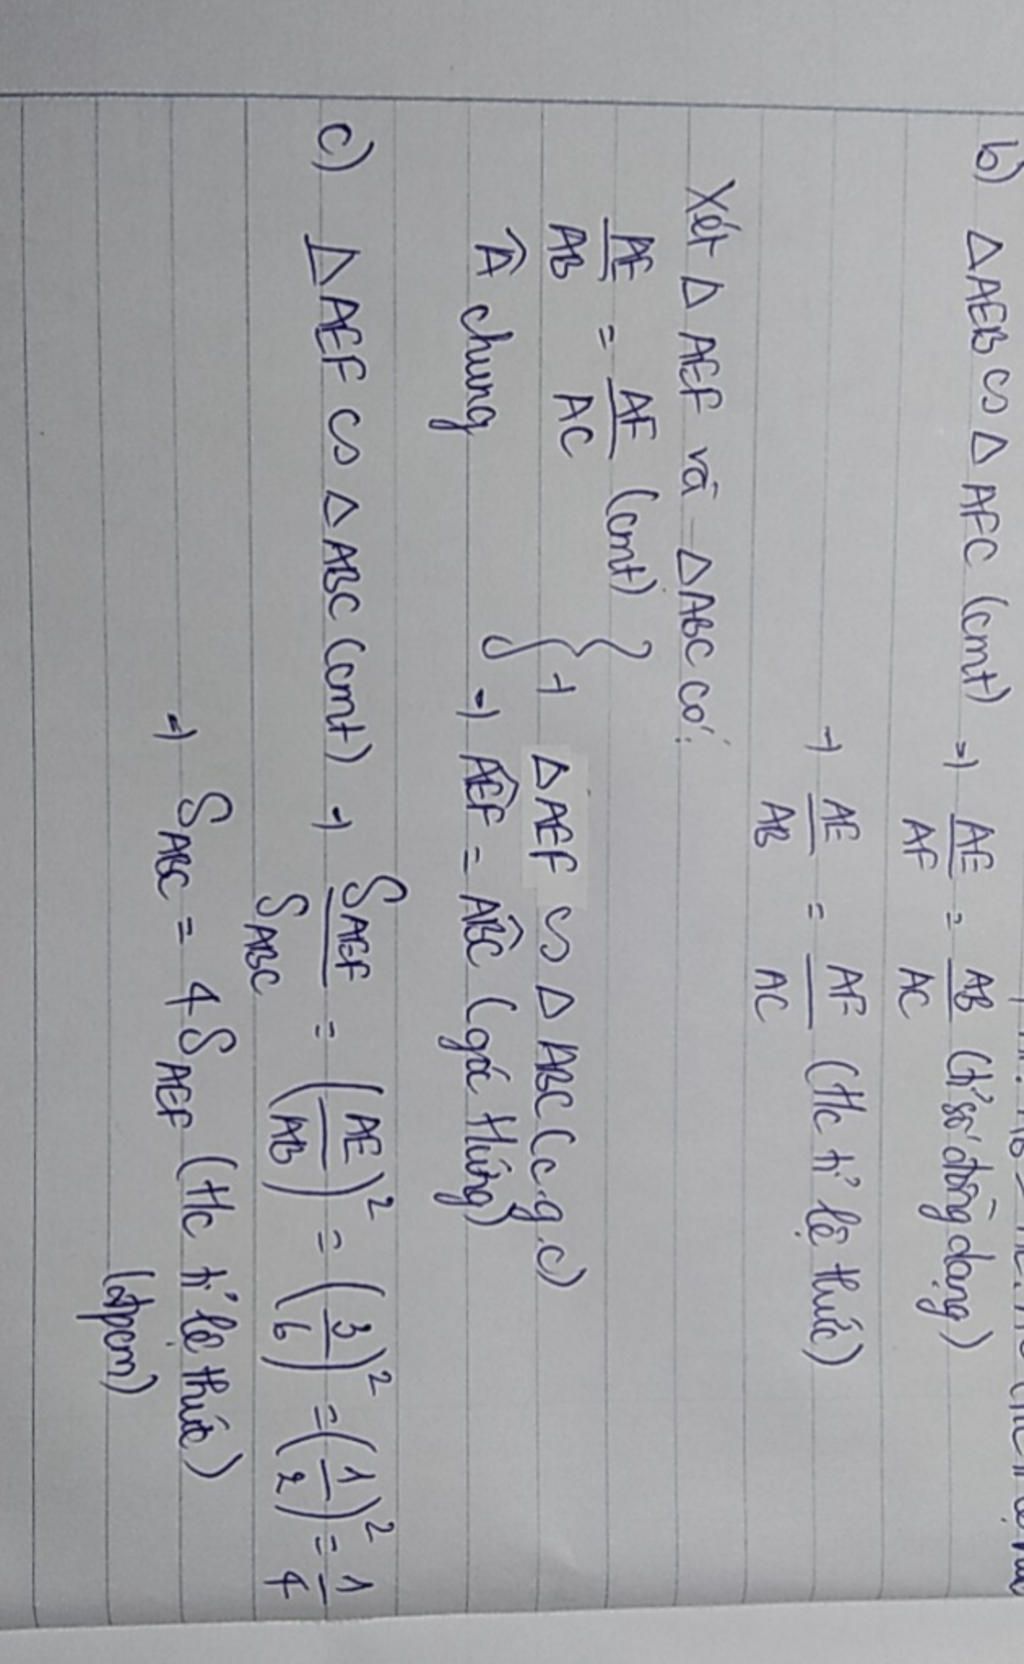 b) ΔAEB ∽ ΔAFC (cmt) => AE/AF = AB/AC (tỉ số đồng dạng)
=> AE/AB = AF/AC (t/c tỉ lệ thức)
Xét Δ AEF và ΔABC có:
AE/AB = AF/AC (cmt)
Â chung
} => ΔAEF ∽ Δ ABC (c.g.c)
=> AÊF = AB̂C (góc t/ứng)
c) ΔAEF ∽ ΔABC (cmt) => S_AEF/S_ABC = (AE/AB)² = (3/6)² = (1/2)² = 1/4
=> S_ABC = 4S_AEF (t/c tỉ lệ thức)
(đpcm)